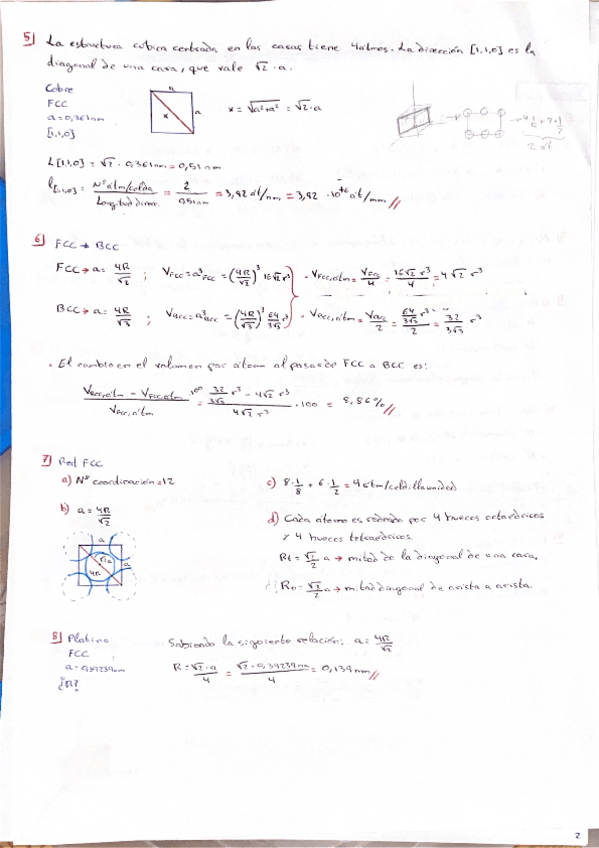 5) La estructura cubica centrada en las caras tiene 4 átomos. La dirección [1,1,0] es la
diagonal de una cara, que vale √2 · a.
Cobre
FCC
a = 0,361 nm
[1,1,0]
a
x
a
x = √(a²+a²) = √2 · a
2 at
L[1,1,0] = √2 · 0,361 nm = 0,51 nm
l[1,1,0] = Nº atm/celda / Longitud direc. = 2 / 0,51 nm = 3,92 at/nm = 3,92 · 10⁺⁶ at/mm //
6) FCC → BCC
FCC → a = 4R/√2 ; V_FCC = a³_FCC = (4R/√2)³ 16√2 r³ · V_FCC,atm = V_FCC/4 = 16√2 r³/4 = 4√2 r³
BCC → a = 4R/√3 ; V_BCC = a³_BCC = (4R/√3)³ 64/3√3 r³ · V_BCC,atm = V_BCC/2 = 64/3√3 r³/2 = 32/3√3 r³
· El cambio en el volumen por átomo al pasar de FCC a BCC es:
V_BCC,atm − V_FCC,atm / V_FCC,atm · 100 = 32/3√3 r³ − 4√2 r³ / 4√2 r³ · 100 = 8,86% //
7) Red FCC
a) Nº coordinación = 12
c) 8 · 1/8 + 6 · 1/2 = 4 atm/celdilla unidad
b) a = 4R/√2
d) Cada átomo es rodeado por 4 huecos octaédricos
y 4 huecos tetraédricos
a
√2a
a
4R
Rt = √2/2 a → mitad de la diagonal de una cara,
Ro = √3/2 a → mitad diagonal de arista a arista.
8) Platino
Sabiendo la siguiente relación: a = 4R/√2
FCC
a = 0,39239 nm
R = √2 · a / 4 = √2 · 0,39239 nm / 4 = 0,139 nm //
¿R?
2